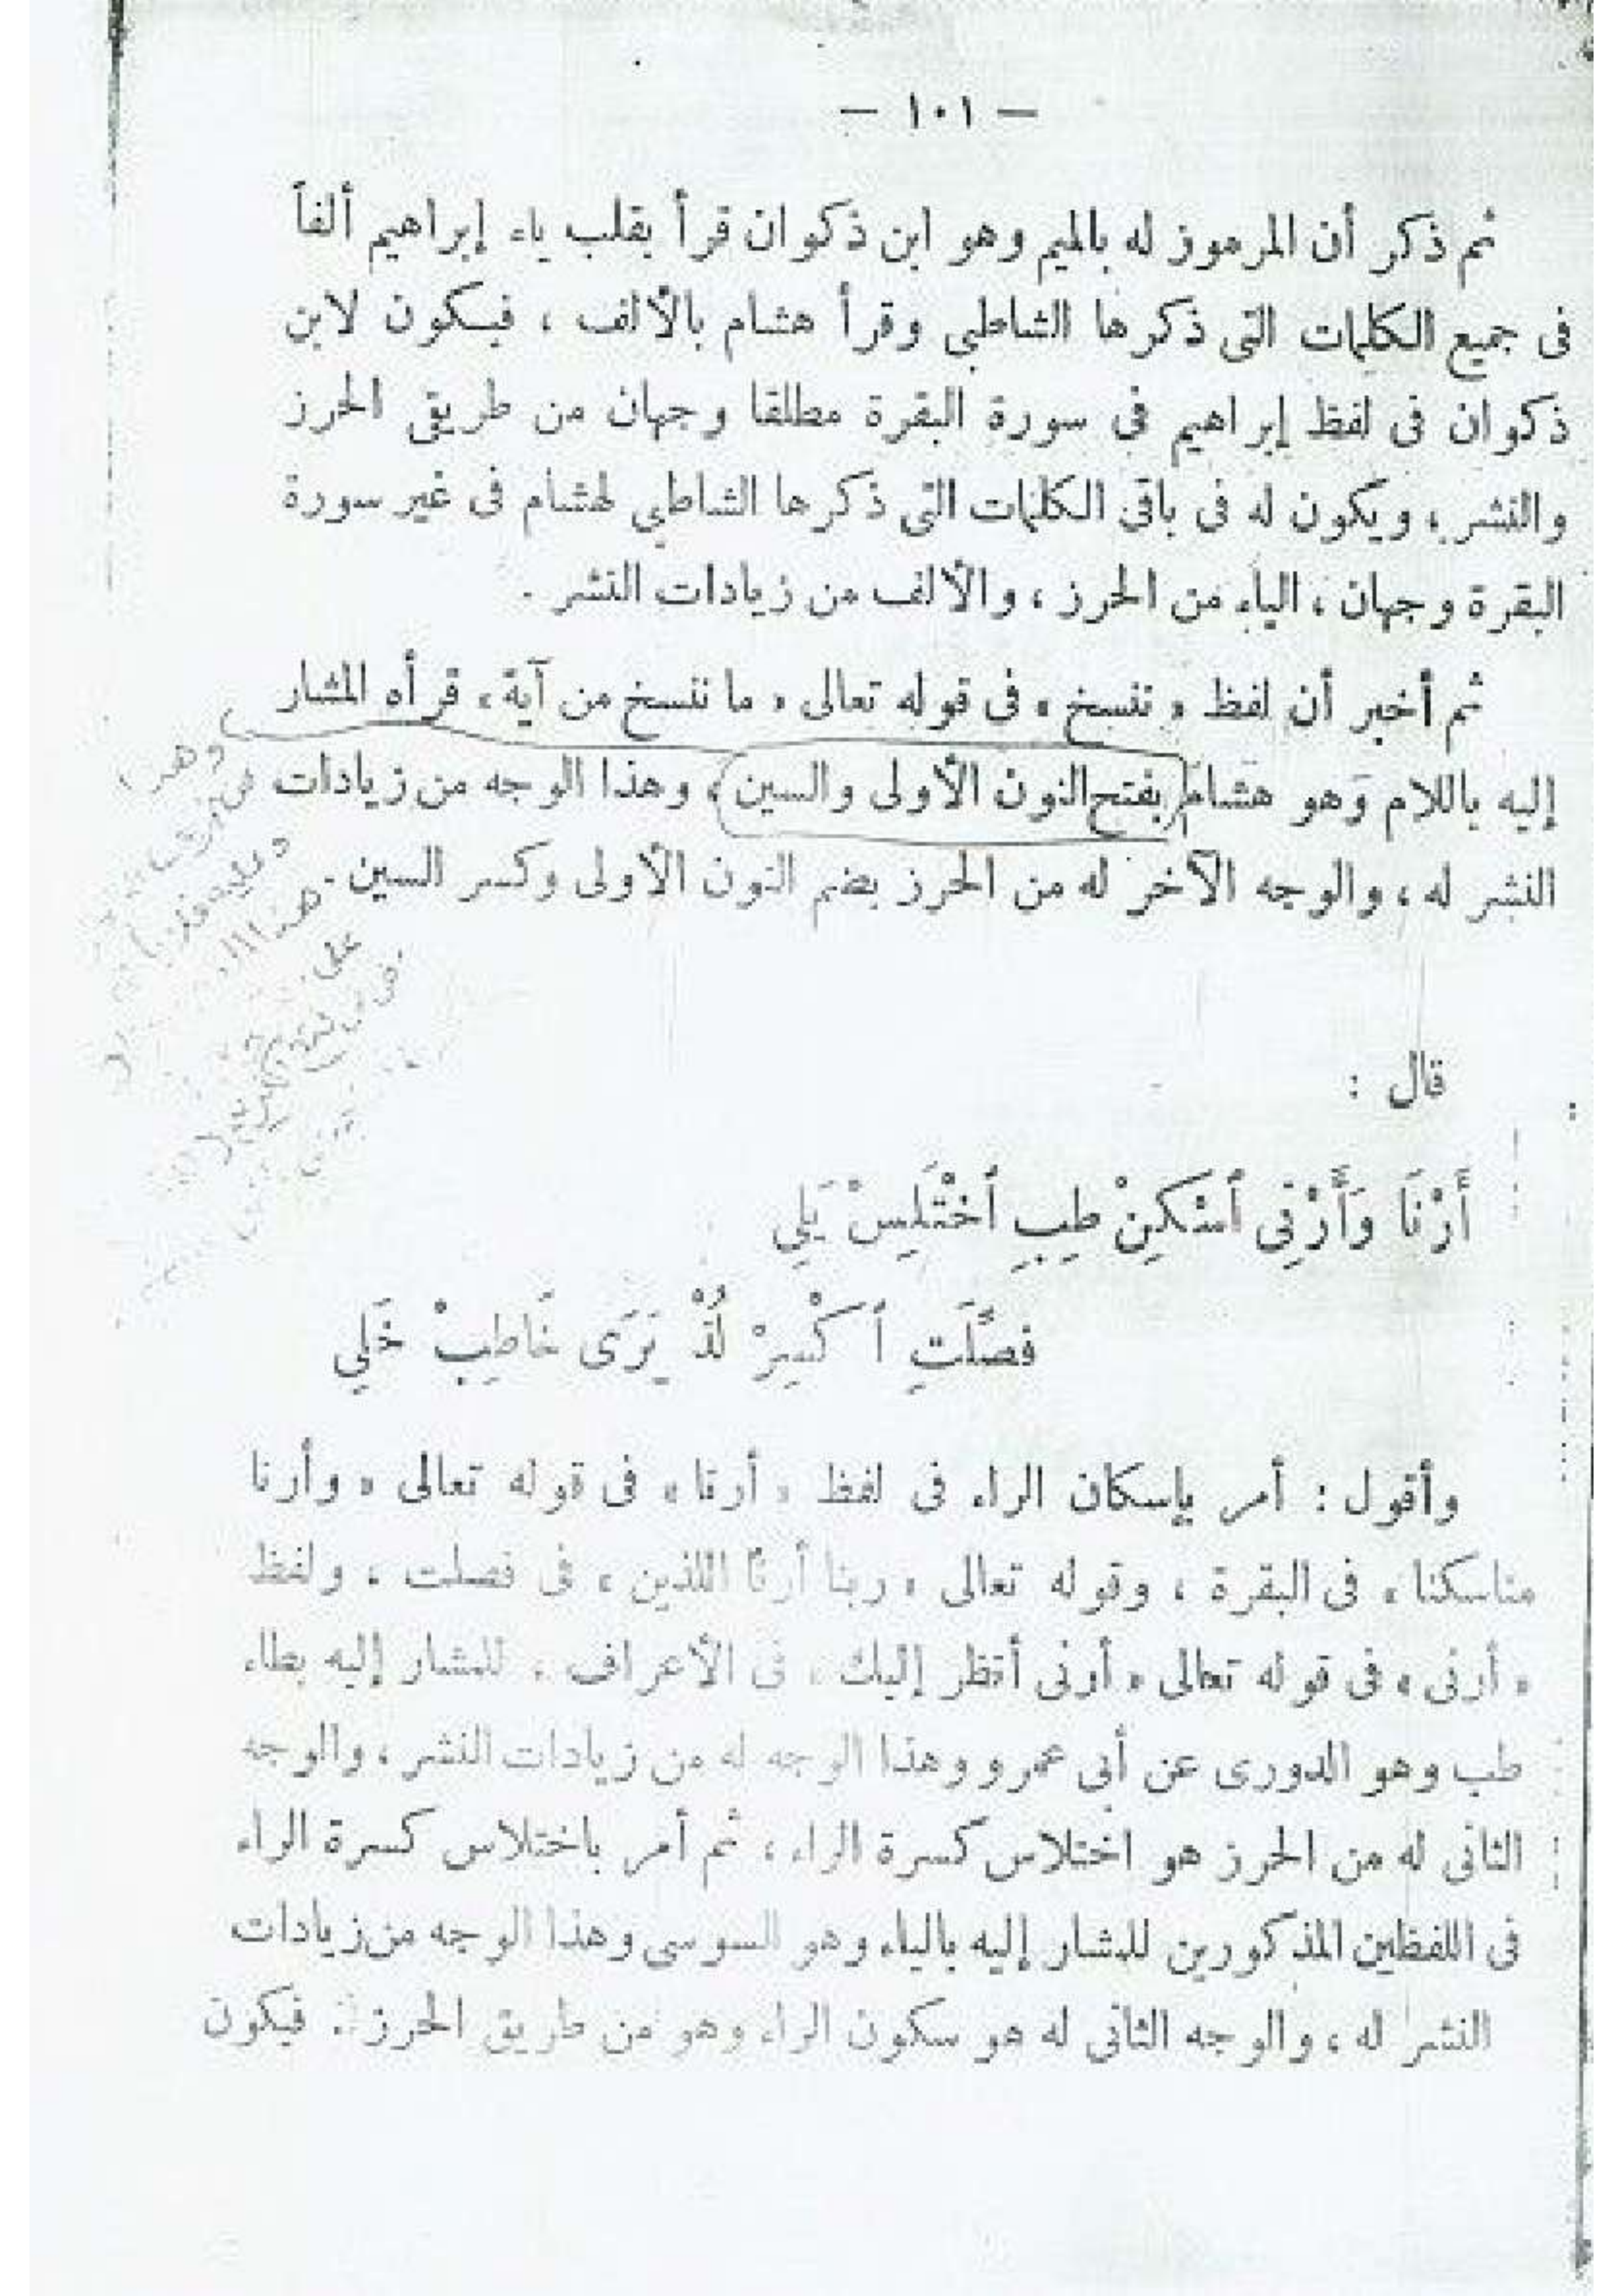 — ١٠١ —
ثم ذكر أن المرموز له بالميم وهو ابن ذكوان قرأ بقلب ياء إبراهيم ألفاً
فى جميع الكلمات التى ذكرها الشاطبى وقرأ هشام بالألف ، فيكون لابن
ذكوان فى لفظ إبراهيم فى سورة البقرة مطلقا وجهان من طريقى الحرز
والنشر ، ويكون له فى باقى الكلمات التى ذكرها الشاطبى لهشام فى غير سورة
البقرة وجهان ، الياء من الحرز ، والألف من زيادات النشر .
ثم أخبر أن لفظ « ننسخ » فى قوله تعالى « ما ننسخ من آية ، قرأه المشار
إليه باللام وهو هشام (بفتح النون الأولى والسين) ، وهذا الوجه من زيادات
النشر له ، والوجه الآخر له من الحرز بضم النون الأولى وكسر السين .
وهذا
هذا
على
قال :
أَرْنَا وَأَرْنِى أسْكِنْ طِبِ أخْتَلِسْ يَلِى
فصِّلَتِ أكْسِرْ لُذْ يَرَى خَاطِبْ خَلِى
وأقول : أمر بإسكان الراء فى لفظ « أرنا » فى قوله تعالى « وأرنا
مناسكنا » فى البقرة ، وقوله تعالى « ربنا أرنا اللذين » فى فصلت ، ولفظ
« أرنى » فى قوله تعالى « أرنى أنظر إليك » فى الأعراف . للمشار إليه بطاء
طب وهو الدورى عن أبى عمرو وهذا الوجه له من زيادات النشر ، والوجه
الثانى له من الحرز هو اختلاس كسرة الراء ، ثم أمر باختلاس كسرة الراء
فى اللفظين المذكورين للمشار إليه بالياء وهو السوسى وهذا الوجه من زيادات
النشر له ، والوجه الثانى له هو سكون الراء وهو من طريق الحرز . فيكون